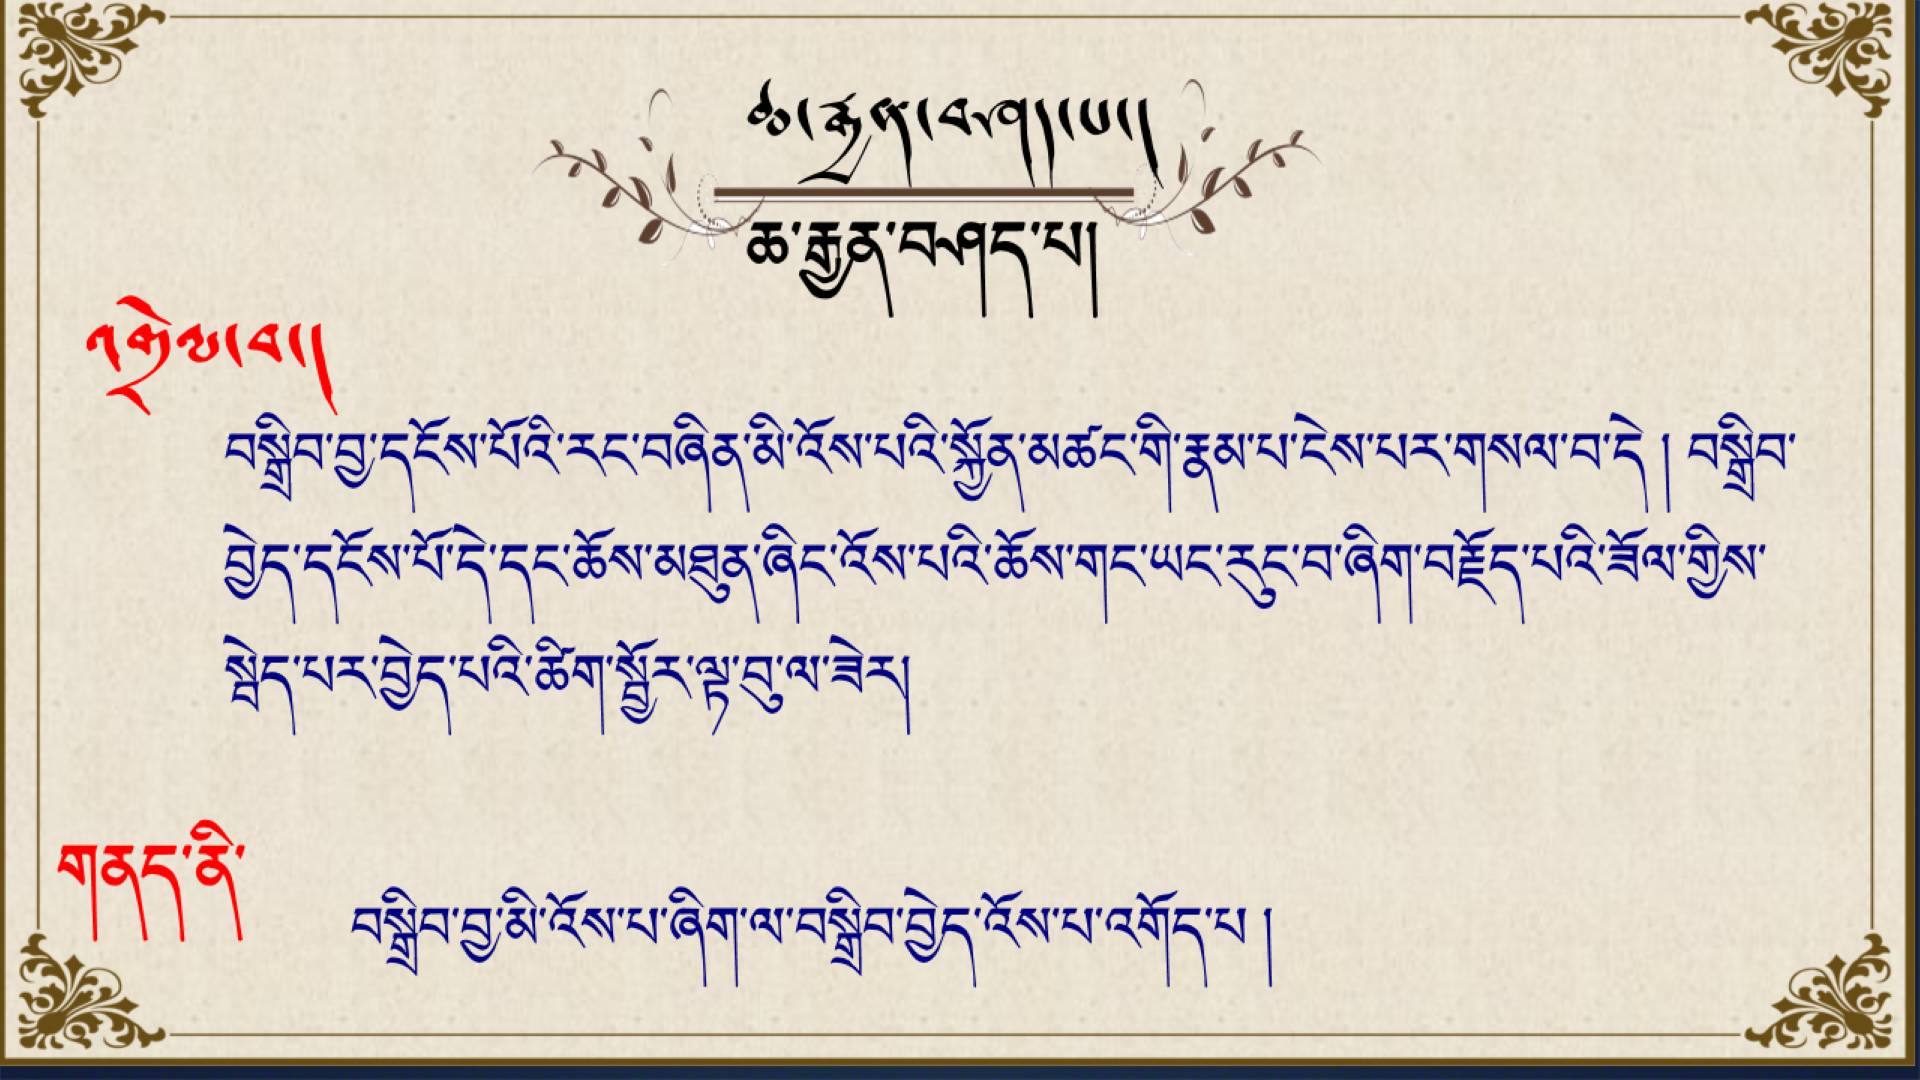 ཆ་རྒྱན་བཤད་པ།།
ཆ་རྒྱན་བཤད་པ།
འགྲེལ་བ།།
བསྒྲིབ་བྱ་དངོས་པོའི་རང་བཞིན་མི་འོས་པའི་སྐྱོན་མཚང་གི་རྣམ་པ་ངེས་པར་གསལ་བ་དེ། བསྒྲིབ་
བྱེད་དངོས་པོ་དེ་དང་ཆོས་མཐུན་ཞིང་འོས་པའི་ཆོས་གང་ཡང་རུང་བ་ཞིག་བརྗོད་པའི་ཟོལ་གྱིས་
སྦེད་པར་བྱེད་པའི་ཚིག་སྦྱོར་ལྟ་བུ་ལ་ཟེར།
གནད་ནི་
བསྒྲིབ་བྱ་མི་འོས་པ་ཞིག་ལ་བསྒྲིབ་བྱེད་འོས་པ་འགོད་པ །